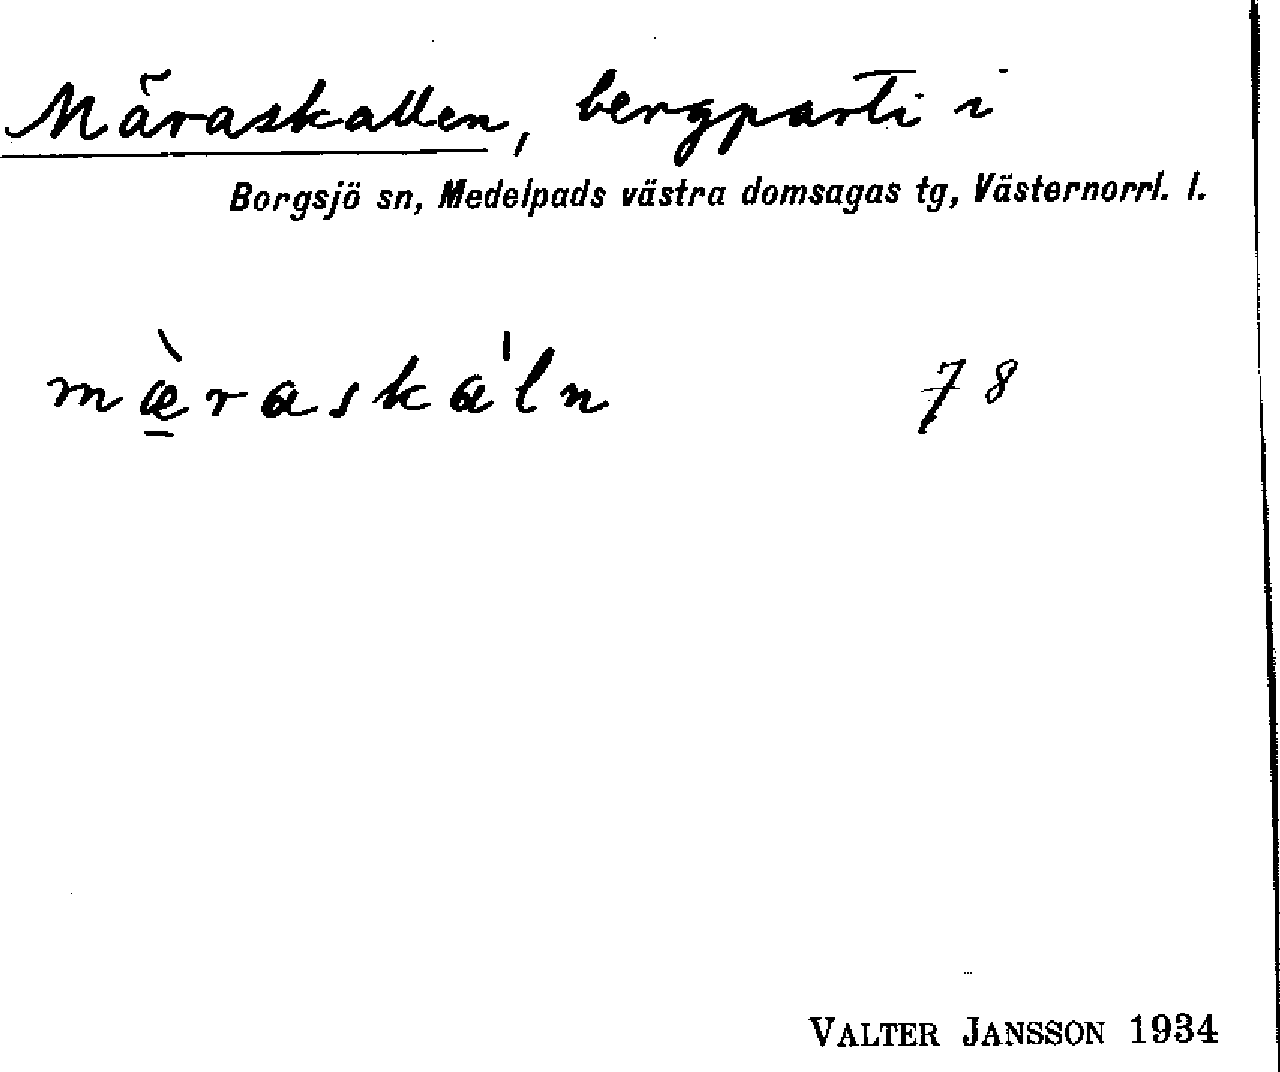 Märaskallen, bergparti i
Borgsjö sn, Medelpads västra domsagas tg, Västernorrl. l.
mæ̲̀raska'ln 78
VALTER JANSSON 1934